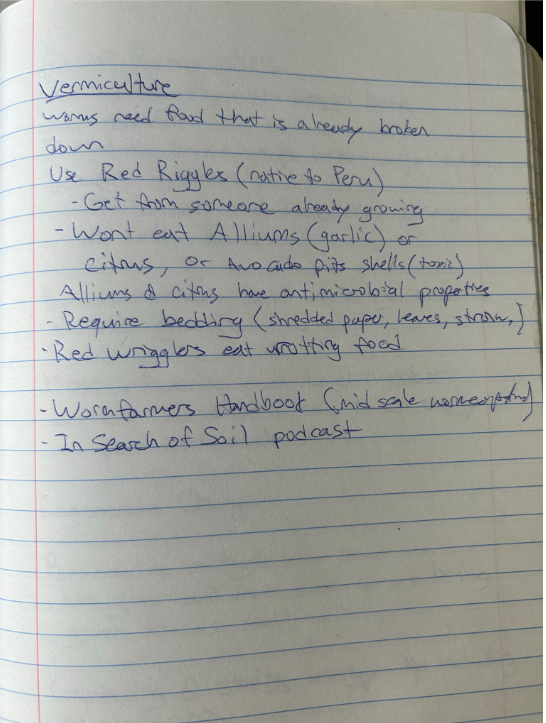 Vermiculture
Worms need food that is already broken
down
Use Red Riggles (native to Peru)
- Get from someone already growing
- Wont eat Alliums (garlic) or
citrus, or Avocado pits shells (toxic)
Alliums & citrus have antimicrobial properties
- Require bedding (shredded paper, leaves, straw,)
- Red wrigglers eat wrotting food
- Wormfarmers Handbook (mid scale
- In Search of Soil podcast